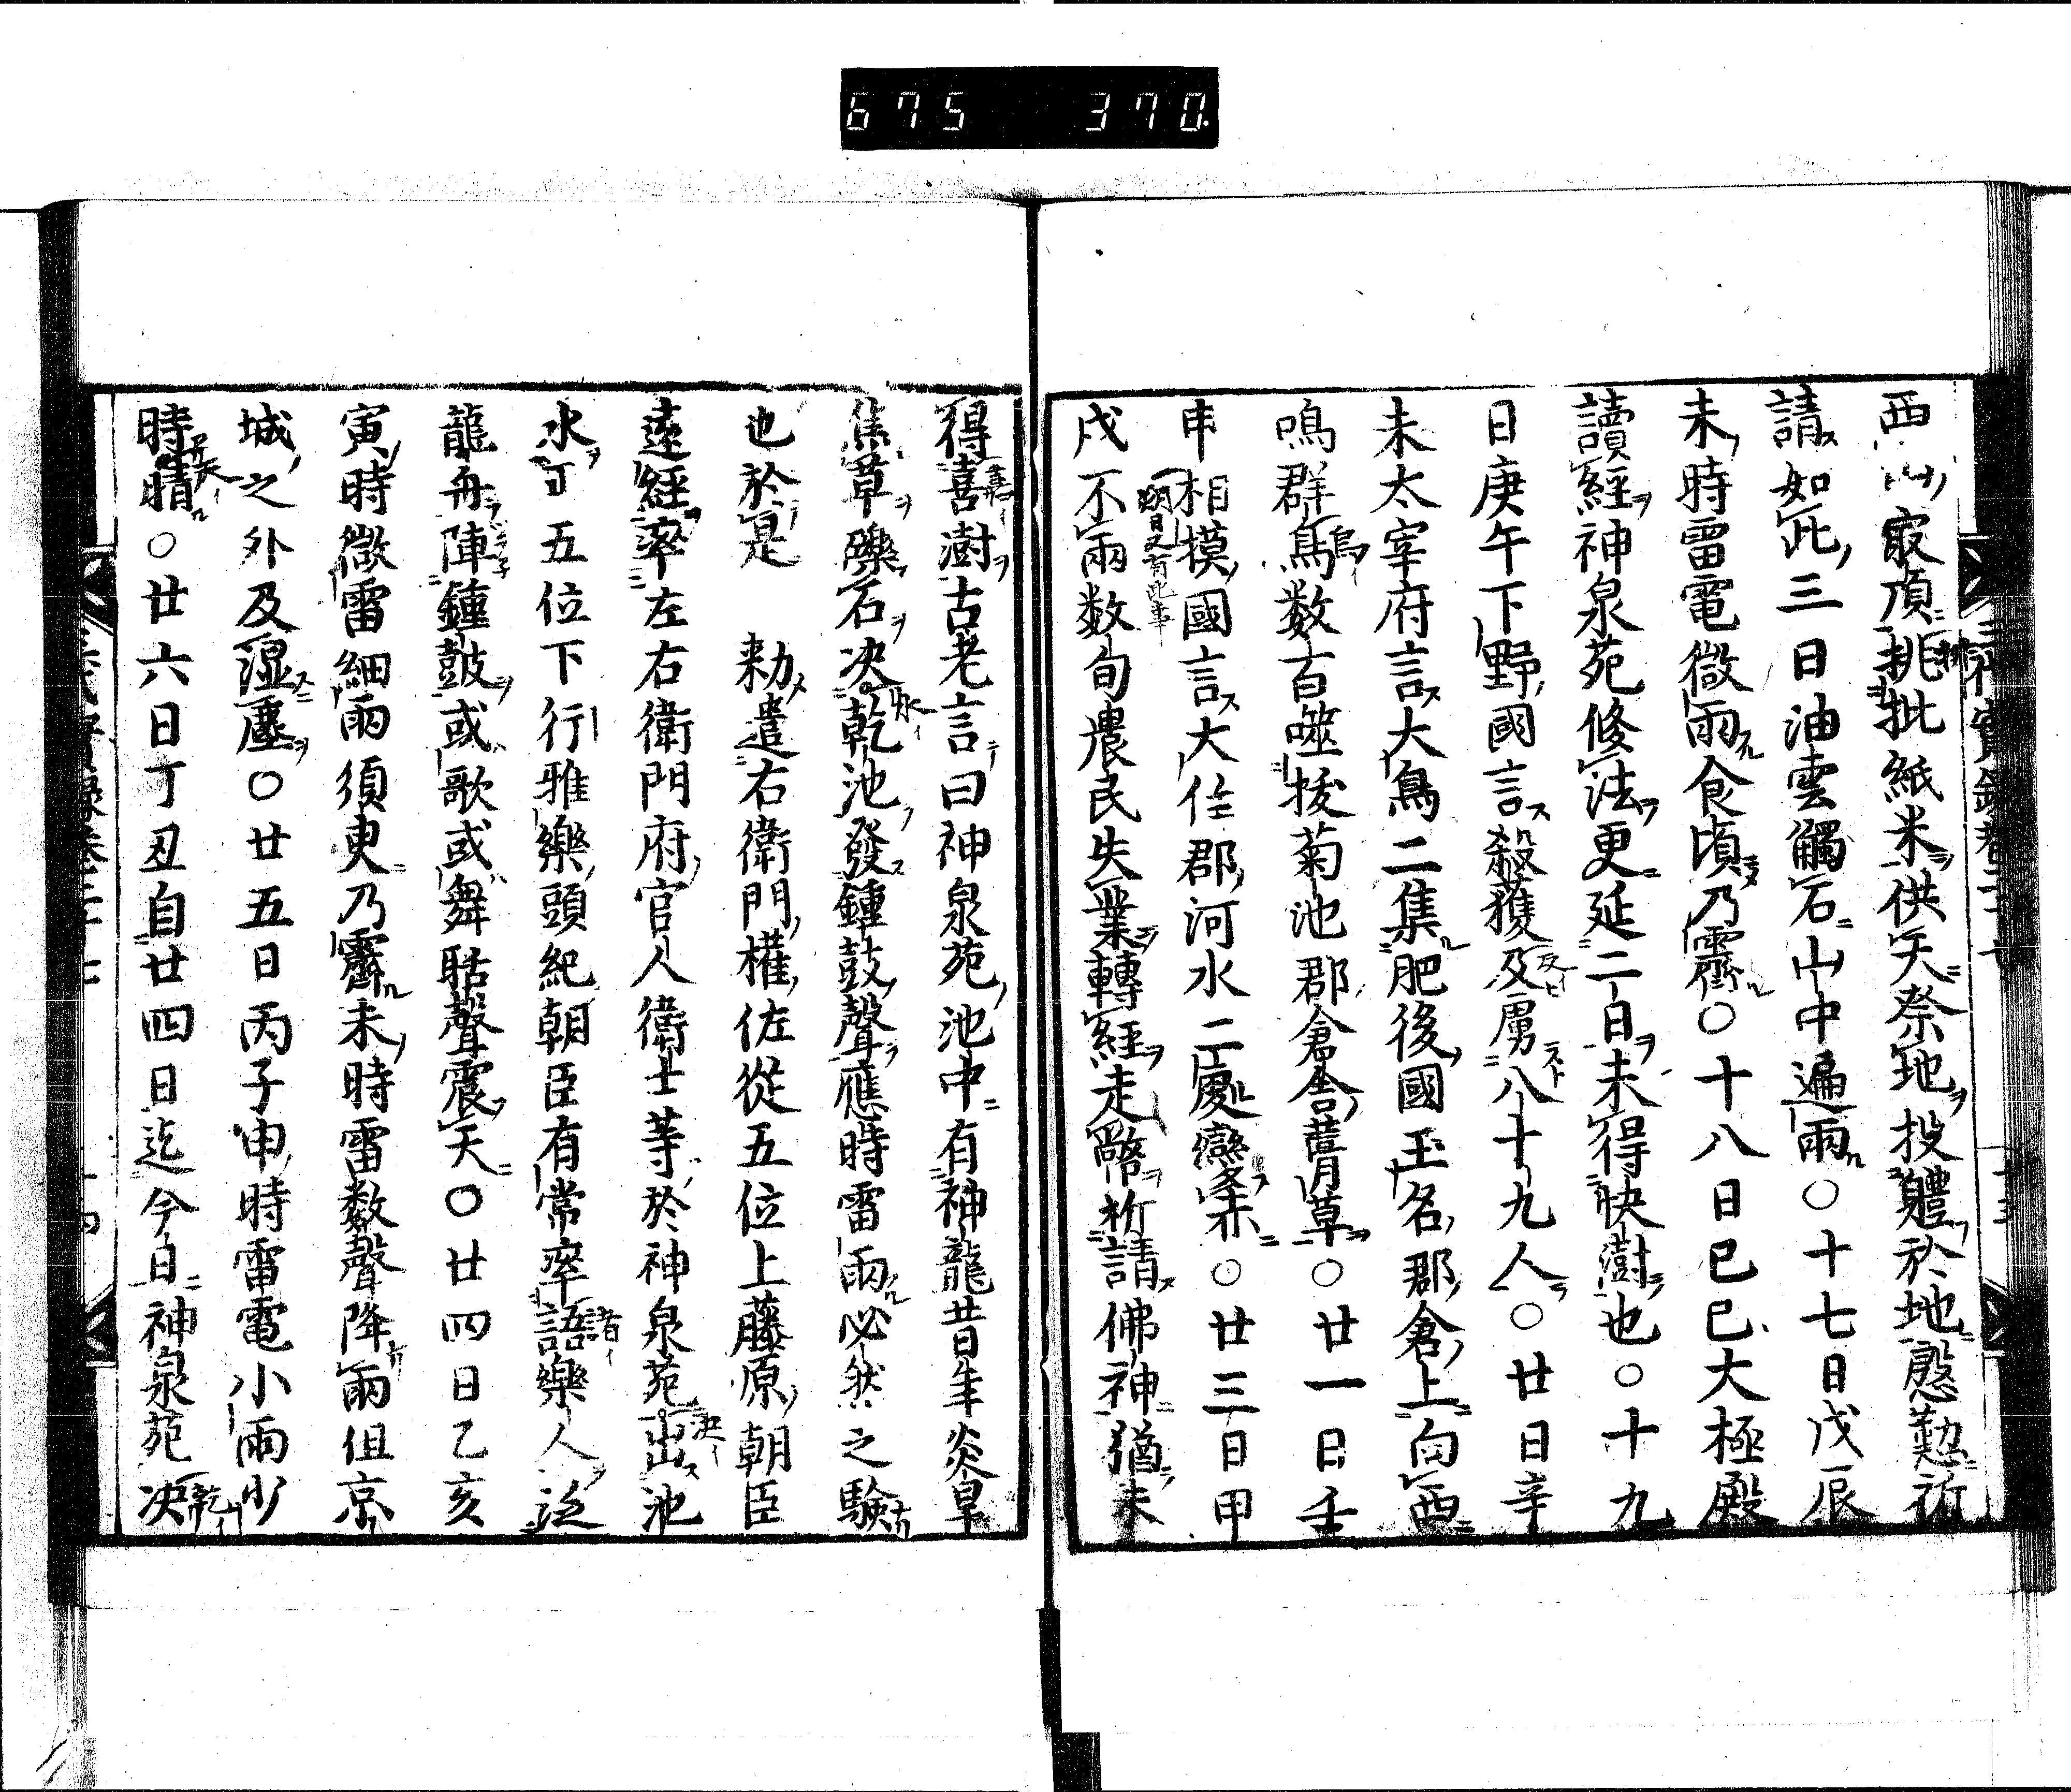 675 370.
西山最頂排批紙米供天祭地投體於地慇懃祈
請如此三日油雲觸石山中遍雨○十七日戊辰
未時雷電微雨食頃乃霽○十八日己巳大極殿
讀經神泉苑修法更延二日未得快澍也○十九
日庚午下野國言殺獲及虜八十九人○廿日辛
未太宰府言大鳥二集肥後國玉名郡倉上向西
鳴群鳥数百噬抜菊池郡倉舎葺草○廿一日壬
申相模國言大住郡河水二處變条○廿三日甲
戌不雨数旬農民失業轉經走幣祈請佛神猶未
得喜澍古老言曰神泉苑池中有神龍昔年炎旱
焦草礫石决乾池發鍾鼓聲應時雷雨必然之驗
也於是 勅遣右衛門權佐從五位上藤原朝臣
遠經率左右衛門府官人衛士等於神泉苑出池
水丁五位下行雅樂頭紀朝臣有常率語樂人泛
龍舟陣鍾鼓或歌或舞聒聲震天○廿四日乙亥
寅時微雷細雨須臾乃霽未時雷数聲降雨但京
城之外及湿塵○廿五日丙子申時雷電小雨少
時晴○廿六日丁丑自廿四日迄今日神泉苑决